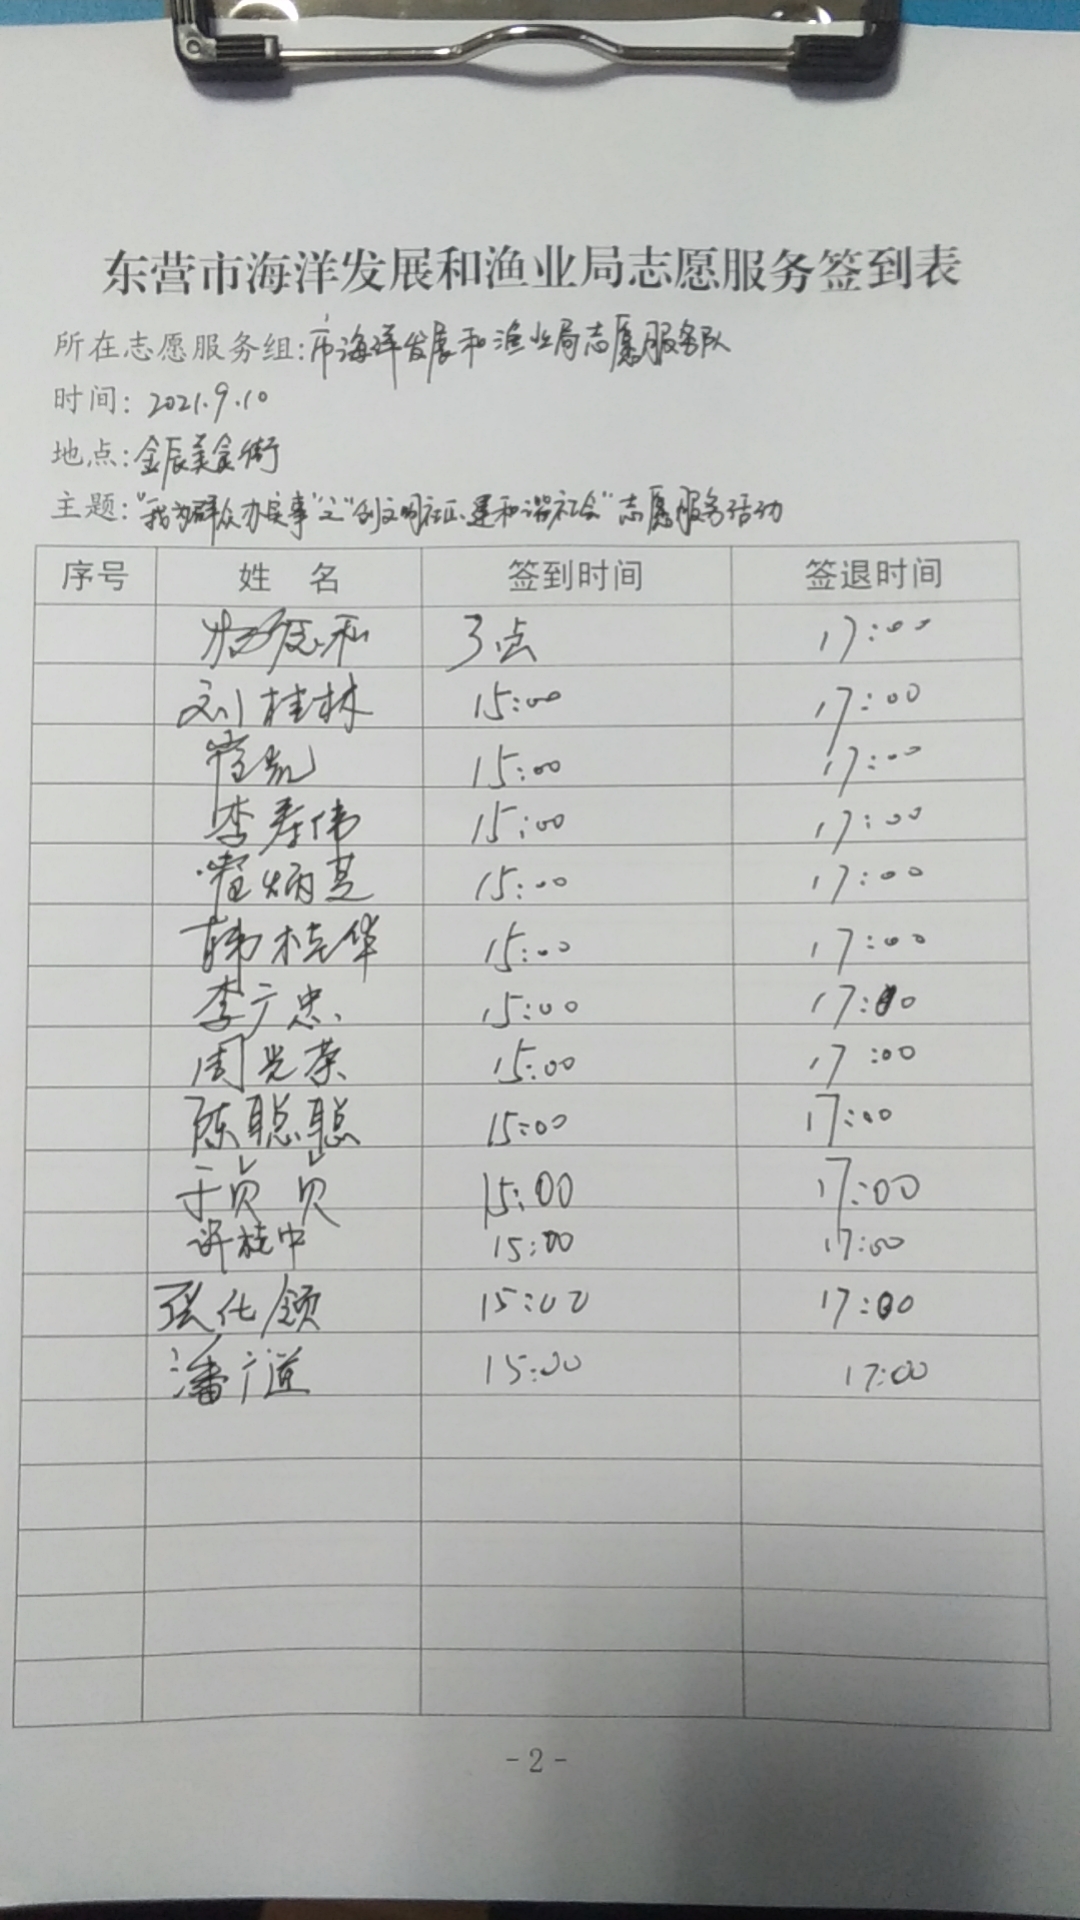 东营市海洋发展和渔业局志愿服务签到表
所在志愿服务组:市海洋发展和渔业局志愿服务队
时间: 2021.9.10
地点:金辰美食街
主题:"我为群众办实事"之"创文明社区、建和谐社会"志愿服务活动
序号 姓 名 签到时间 签退时间
3点 17:00
刘桂林 15:00 17:00
崔凯 15:00 17:00
李寿伟 15:00 17:00
崔炳芝 15:00 17:00
韩桂华 15:00 17:00
李广忠 15:00 17:00
周光荣 15:00 17:00
陈聪聪 15:00 17:00
于贞贞 15:00 17:00
许桂中 15:00 17:00
张化领 15:00 17:00
潘广道 15:00 17:00
-2-